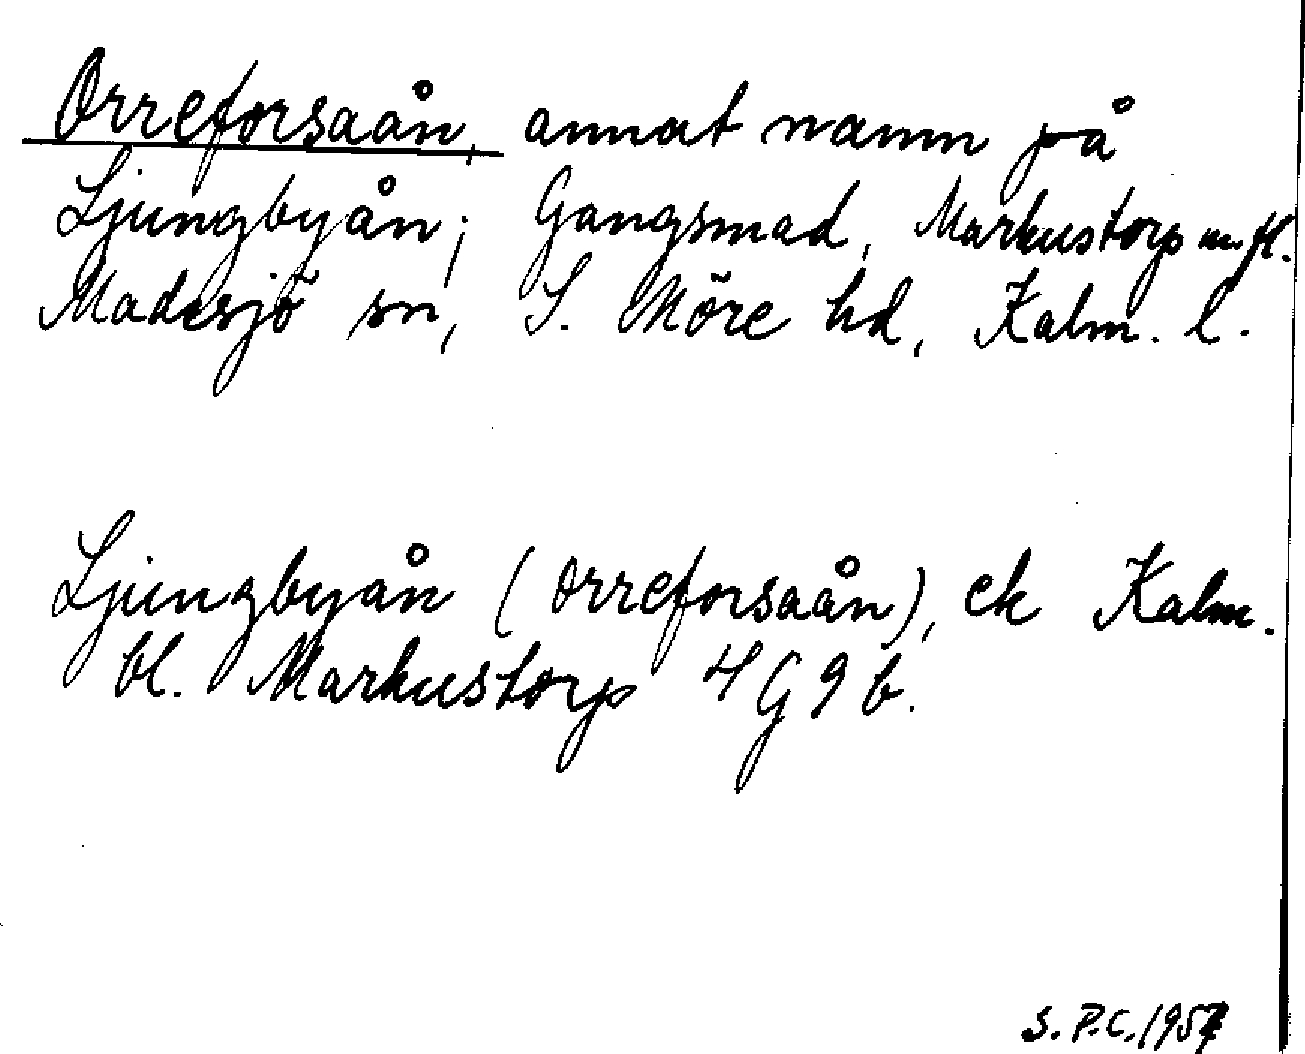 Orreforsaån, annat namn på
Ljungbyån; Gangsmad, Markustorp m. fl.
Madesjö sn, S. Möre hd, Kalm. l.
Ljungbyån (Orreforsaån), ek Kalm.
bl. Markustorp 4G9b.
S.P.C. 1957